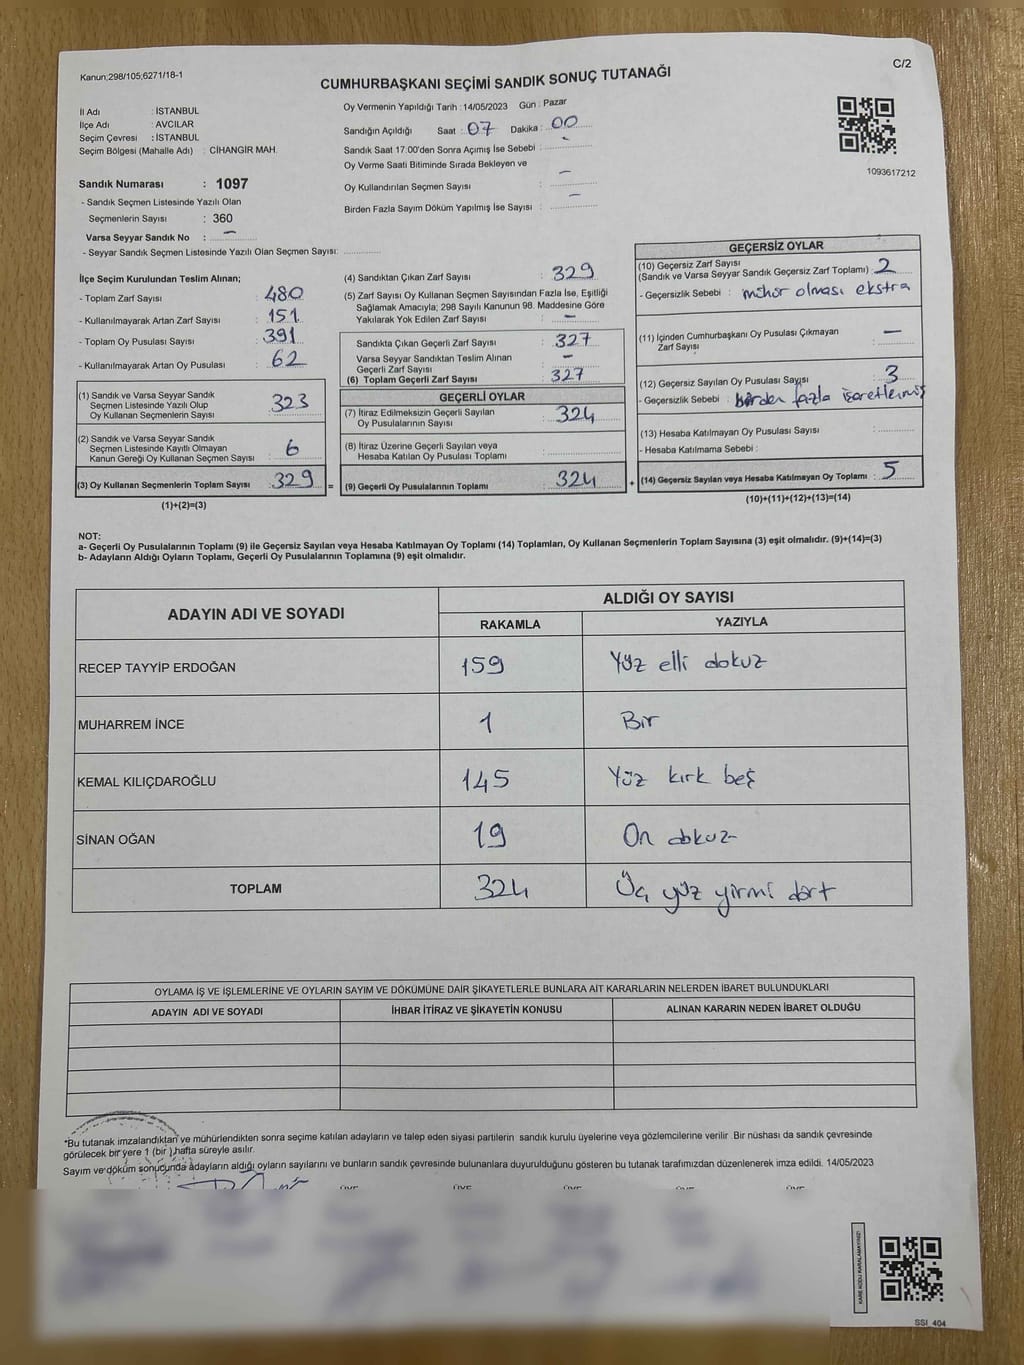 Kanun;298/105;6271/18-1
C/2
CUMHURBAŞKANI SEÇİMİ SANDIK SONUÇ TUTANAĞI
İl Adı : İSTANBUL
İlçe Adı : AVCILAR
Seçim Çevresi : İSTANBUL
Seçim Bölgesi (Mahalle Adı) : CİHANGİR MAH.
Sandık Numarası : 1097
- Sandık Seçmen Listesinde Yazılı Olan
Seçmenlerin Sayısı : 360
Varsa Seyyar Sandık No : —
- Seyyar Sandık Seçmen Listesinde Yazılı Olan Seçmen Sayısı:
Oy Vermenin Yapıldığı Tarih :14/05/2023 Gün : Pazar
Sandığın Açıldığı Saat : 07 Dakika : 00
Sandık Saat 17:00'den Sonra Açımış İse Sebebi : -
Oy Verme Saati Bitiminde Sırada Bekleyen ve
Oy Kullandırılan Seçmen Sayısı : —
Birden Fazla Sayım Döküm Yapılmış İse Sayısı : —
1093617212
İlçe Seçim Kurulundan Teslim Alınan;
- Toplam Zarf Sayısı : 480
- Kullanılmayarak Artan Zarf Sayısı : 151
- Toplam Oy Pusulası Sayısı : 391
- Kullanılmayarak Artan Oy Pusulası : 62
(1) Sandık ve Varsa Seyyar Sandık
Seçmen Listesinde Yazılı Olup
Oy Kullanan Seçmenlerin Sayısı : 323
(2) Sandık ve Varsa Seyyar Sandık
Seçmen Listesinde Kayıtlı Olmayan
Kanun Gereği Oy Kullanan Seçmen Sayısı : 6
(3) Oy Kullanan Seçmenlerin Toplam Sayısı : 329 =
(1)+(2)=(3)
(4) Sandıktan Çıkan Zarf Sayısı : 329
(5) Zarf Sayısı Oy Kullanan Seçmen Sayısından Fazla İse, Eşitliği
Sağlamak Amacıyla; 298 Sayılı Kanunun 98. Maddesine Göre
Yakılarak Yok Edilen Zarf Sayısı : —
Sandıkta Çıkan Geçerli Zarf Sayısı : 327
Varsa Seyyar Sandıktan Teslim Alınan
Geçerli Zarf Sayısı : —
(6) Toplam Geçerli Zarf Sayısı : 327
GEÇERLİ OYLAR
(7) İtiraz Edilmeksizin Geçerli Sayılan
Oy Pusulalarının Sayısı : 324
(8) İtiraz Üzerine Geçerli Sayılan veya
Hesaba Katılan Oy Pusulası Toplamı :
(9) Geçerli Oy Pusulalarının Toplamı : 324 +
GEÇERSİZ OYLAR
(10) Geçersiz Zarf Sayısı
(Sandık ve Varsa Seyyar Sandık Geçersiz Zarf Toplamı) : 2
- Geçersizlik Sebebi : mühür olması ekstra
(11) İçinden Cumhurbaşkanı Oy Pusulası Çıkmayan
Zarf Sayısı : —
(12) Geçersiz Sayılan Oy Pusulası Sayısı : 3
- Geçersizlik Sebebi : birden fazla işaretlenmiş
(13) Hesaba Katılmayan Oy Pusulası Sayısı :
- Hesaba Katılmama Sebebi :
(14) Geçersiz Sayılan veya Hesaba Katılmayan Oy Toplamı : 5
(10)+(11)+(12)+(13)=(14)
NOT:
a- Geçerli Oy Pusulalarının Toplamı (9) ile Geçersiz Sayılan veya Hesaba Katılmayan Oy Toplamı (14) Toplamları, Oy Kullanan Seçmenlerin Toplam Sayısına (3) eşit olmalıdır. (9)+(14)=(3)
b- Adayların Aldığı Oyların Toplamı, Geçerli Oy Pusulalarının Toplamına (9) eşit olmalıdır.
ADAYIN ADI VE SOYADI
ALDIĞI OY SAYISI
RAKAMLA YAZIYLA
RECEP TAYYİP ERDOĞAN 159 Yüz elli dokuz
MUHARREM İNCE 1 Bir
KEMAL KILIÇDAROĞLU 145 Yüz kırk beş
SİNAN OĞAN 19 On dokuz
TOPLAM 324 Üç yüz yirmi dört
OYLAMA İŞ VE İŞLEMLERİNE VE OYLARIN SAYIM VE DÖKÜMÜNE DAİR ŞİKAYETLERLE BUNLARA AİT KARARLARIN NELERDEN İBARET BULUNDUKLARI
ADAYIN ADI VE SOYADI İHBAR İTİRAZ VE ŞİKAYETİN KONUSU ALINAN KARARIN NEDEN İBARET OLDUĞU
*Bu tutanak imzalandıktan ve mühürlendikten sonra seçime katılan adayların ve talep eden siyasi partilerin sandık kurulu üyelerine veya gözlemcilerine verilir .Bir nüshası da sandık çevresinde
görülecek bir yere 1 (bir ) hafta süreyle asılır.
Sayım ve döküm sonucunda adayların aldığı oyların sayılarını ve bunların sandık çevresinde bulunanlara duyurulduğunu gösteren bu tutanak tarafımızdan düzenlenerek imza edildi. 14/05/2023
KARE KODU KARALAMAYINIZ!
SSI_404